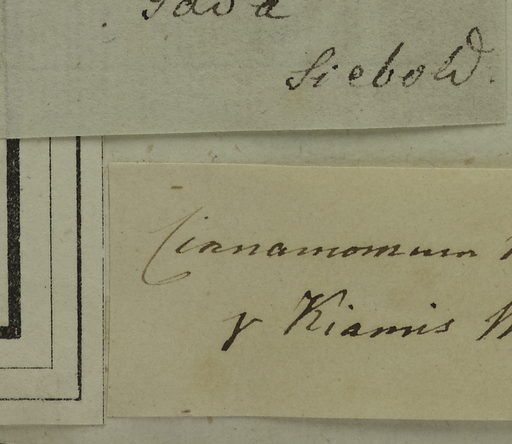 Java
Siebold.
Cinnamomum
γ Kiamis